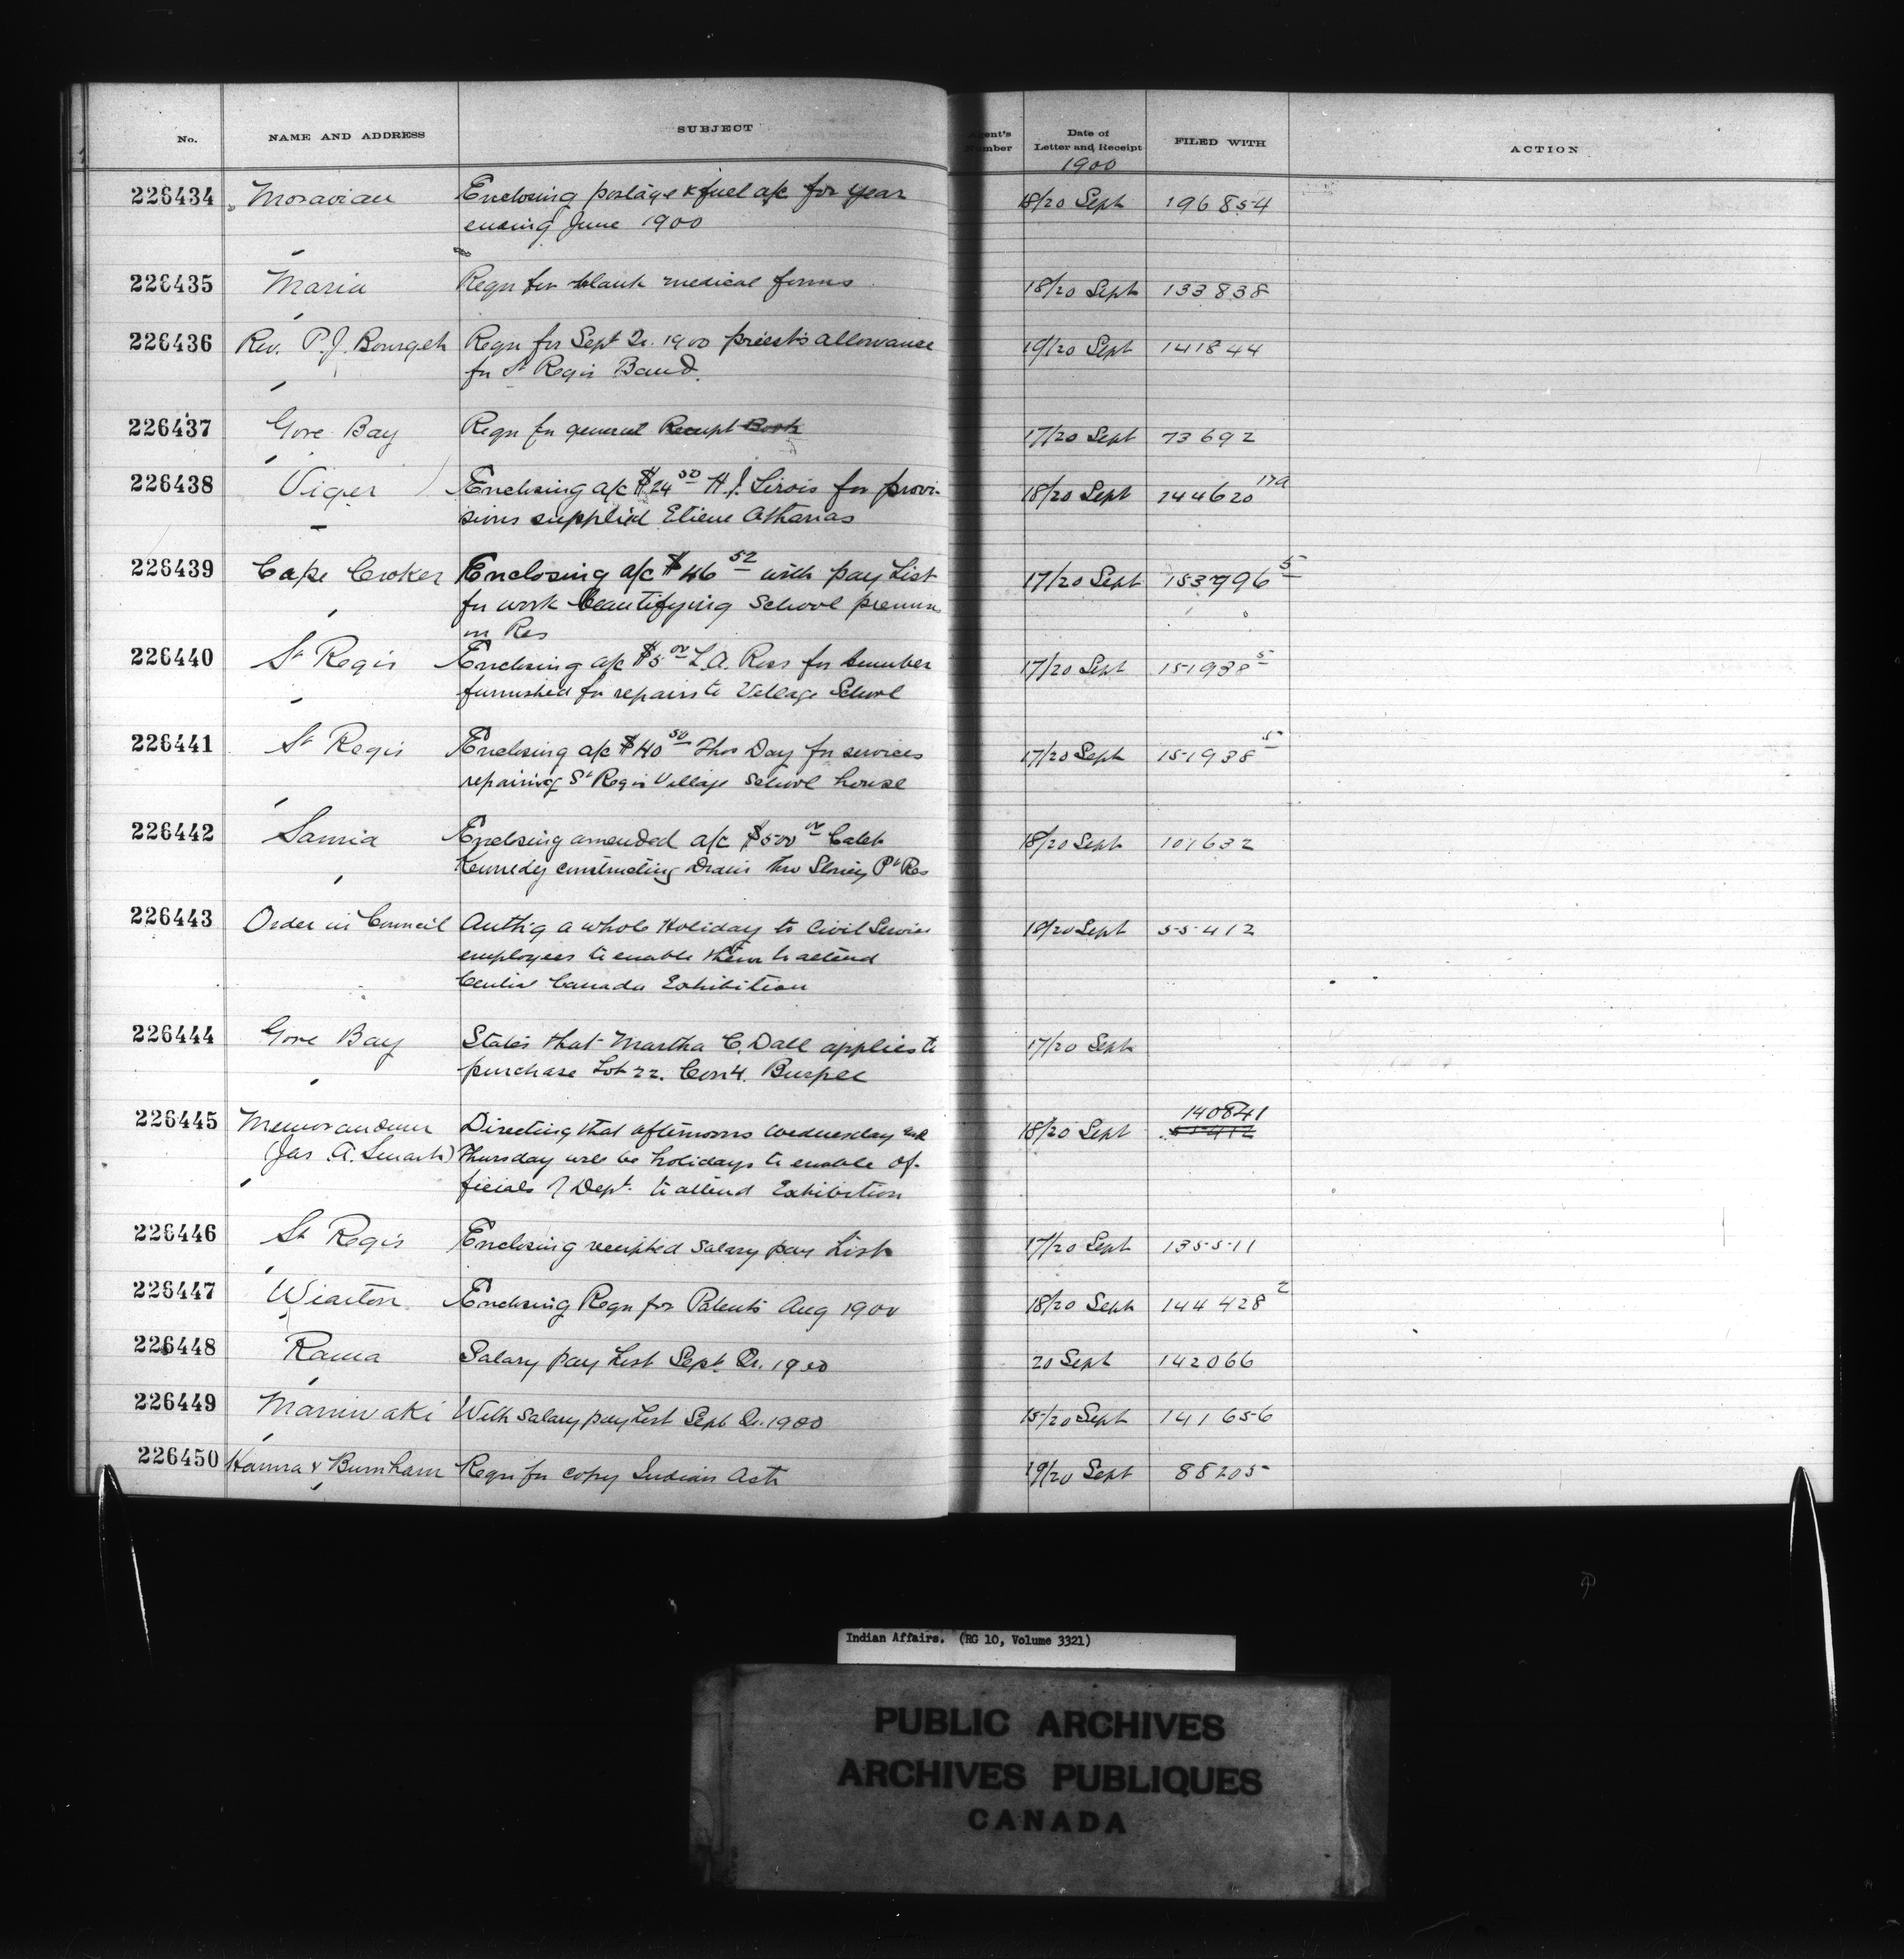 No. NAME AND ADDRESS SUBJECT Agent's Number Date of Letter and Receipt FILED WITH ACTION
1900
226434 Moravian Enclosing postage & fuel a/c for year 18/20 Sept 196854
ending June 1900
226435 Maria Reqn for blank medical forms 18/20 Sept 133838
226436 Rev. P.J. Bourget Reqn for Sept Qr. 1900 priest's allowance 19/20 Sept 141844
for St Regis Band.
226437 Gore Bay Reqn for general Receipt Book 17/20 Sept 73692
226438 Viger Enclosing a/c $24 50 H.J. Sirois for provi- 18/20 Sept 144620 17a
sions supplied Etiene Athanas
226439 Cape Croker Enclosing a/c $46 52 with pay List 17/20 Sept 153996 5
for work beautifying School
on Res
226440 St Regis Enclosing a/c $5 00 L.A. Ross for 17/20 Sept 151938 5
furnished for repairs to Village School
226441 St Regis Enclosing a/c $40 50 Thos Day for services 17/20 Sept 151938 5
repairing St Regis Village School house
226442 Sarnia Enclosing amended a/c $500 00 Caleb 18/20 Sept 107632
Kennedy constructing Drain thro Stoney Pt Res
226443 Order in Council Auth'g a whole Holiday to Civil Service 18/20 Sept 55412
employees to enable them to attend
Central Canada Exhibition
226444 Gore Bay States that Martha C. Dall applies to 17/20 Sept
purchase Lot 22. Con 4. Burpee
226445 Memorandum Directing that afternoons Wednesday and 18/20 Sept 140841
55412
(Jas. A. Smart) Thursday will be holidays to enable of-
ficials of Dept. to attend Exhibition
226446 St Regis Enclosing receipted salary pay List 17/20 Sept 135511
226447 Wiarton Enclosing Reqn for Patents Aug 1900 18/20 Sept 144428 2
226448 Rama Salary pay List Sept Qr. 1900 20 Sept 142066
226449 Maniwaki With salary pay List Sept Qr. 1900 15/20 Sept 141656
226450 Hanna & Burnham Reqn for copy Indian Act 19/20 Sept 88205
Indian Affairs. (RG 10, Volume 3321)
PUBLIC ARCHIVES
ARCHIVES PUBLIQUES
CANADA